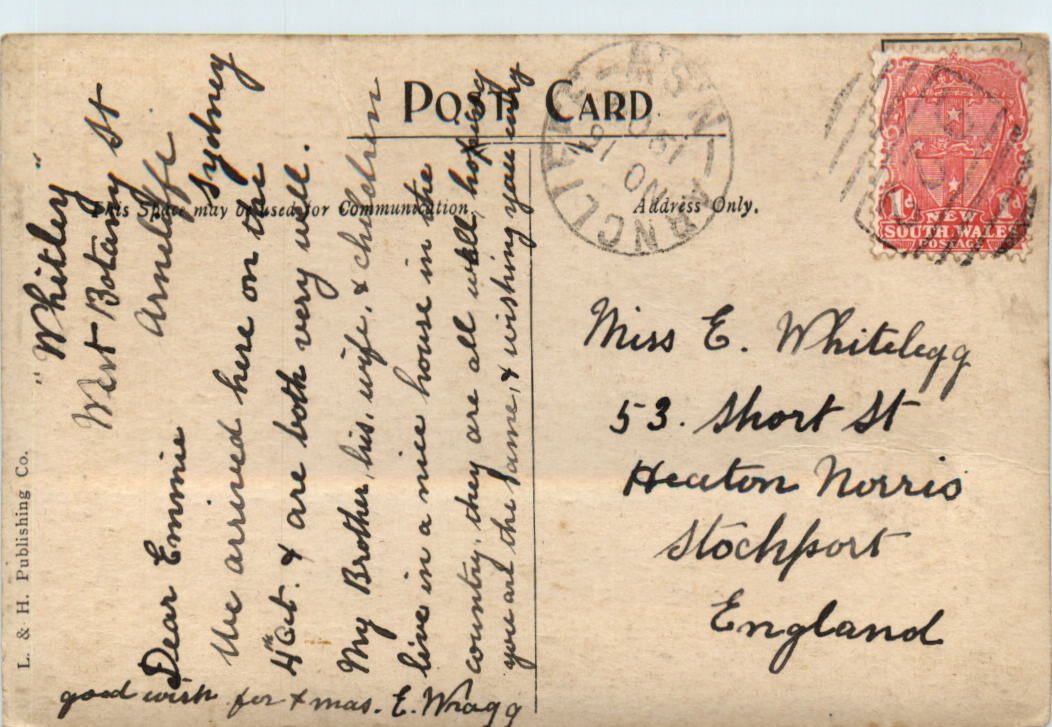 POST CARD
This Space may be used for Communication.
Address Only.
L. & H. Publishing Co.
"Whitley"
West Botany St
Arncliffe
Sydney
Dear Emmie
We arrived here on the
4th Oct. & are both very well.
My Brother, his wife, & children
live in a nice house in the
country, they are all well, hoping
you are the same, & wishing you every
good wish for Xmas. E. Wragg
Miss E. Whitelegg
53. Short St
Heaton Norris
Stockport
England
1d NEW 1d
SOUTH WALES
POSTAGE
ARNCLIFFE
N.S.W
NO